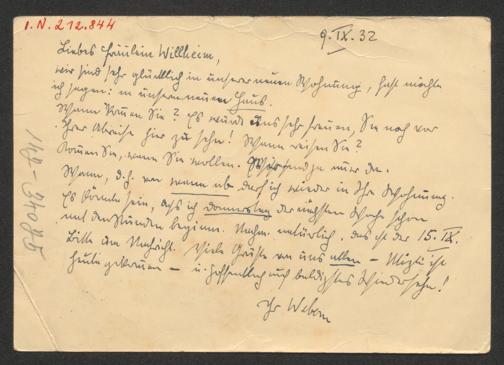 I.N. 212.844
9. IX. 32
Liebes Fräulein Willheim,
wir sind sehr glücklich in unserer neuen Wohnung, fast möchte
ich sagen: in unserem neuen Haus.
Wann kommen Sie? Es würde uns sehr freuen, Sie noch vor
Ihrer Abreise hier zu sehn! Wann reisen Sie?
Kommen Sie, wann Sie wollen. Wir sind ja immer da.
Wann, d.h. von wann ab darf ich wieder in Ihre Wohnung.
Es könnte sein, dass ich donnerstag der nächsten Woche schon
mit den Stunden beginne. Nachm. natürlich, das ist der 15. IX.
Bitte um Nachricht. Viele Grüße von uns allen – Mizzi ist
heute gekommen – u. hoffentlich auf baldigstes Wiedersehn!
Ihr Webern